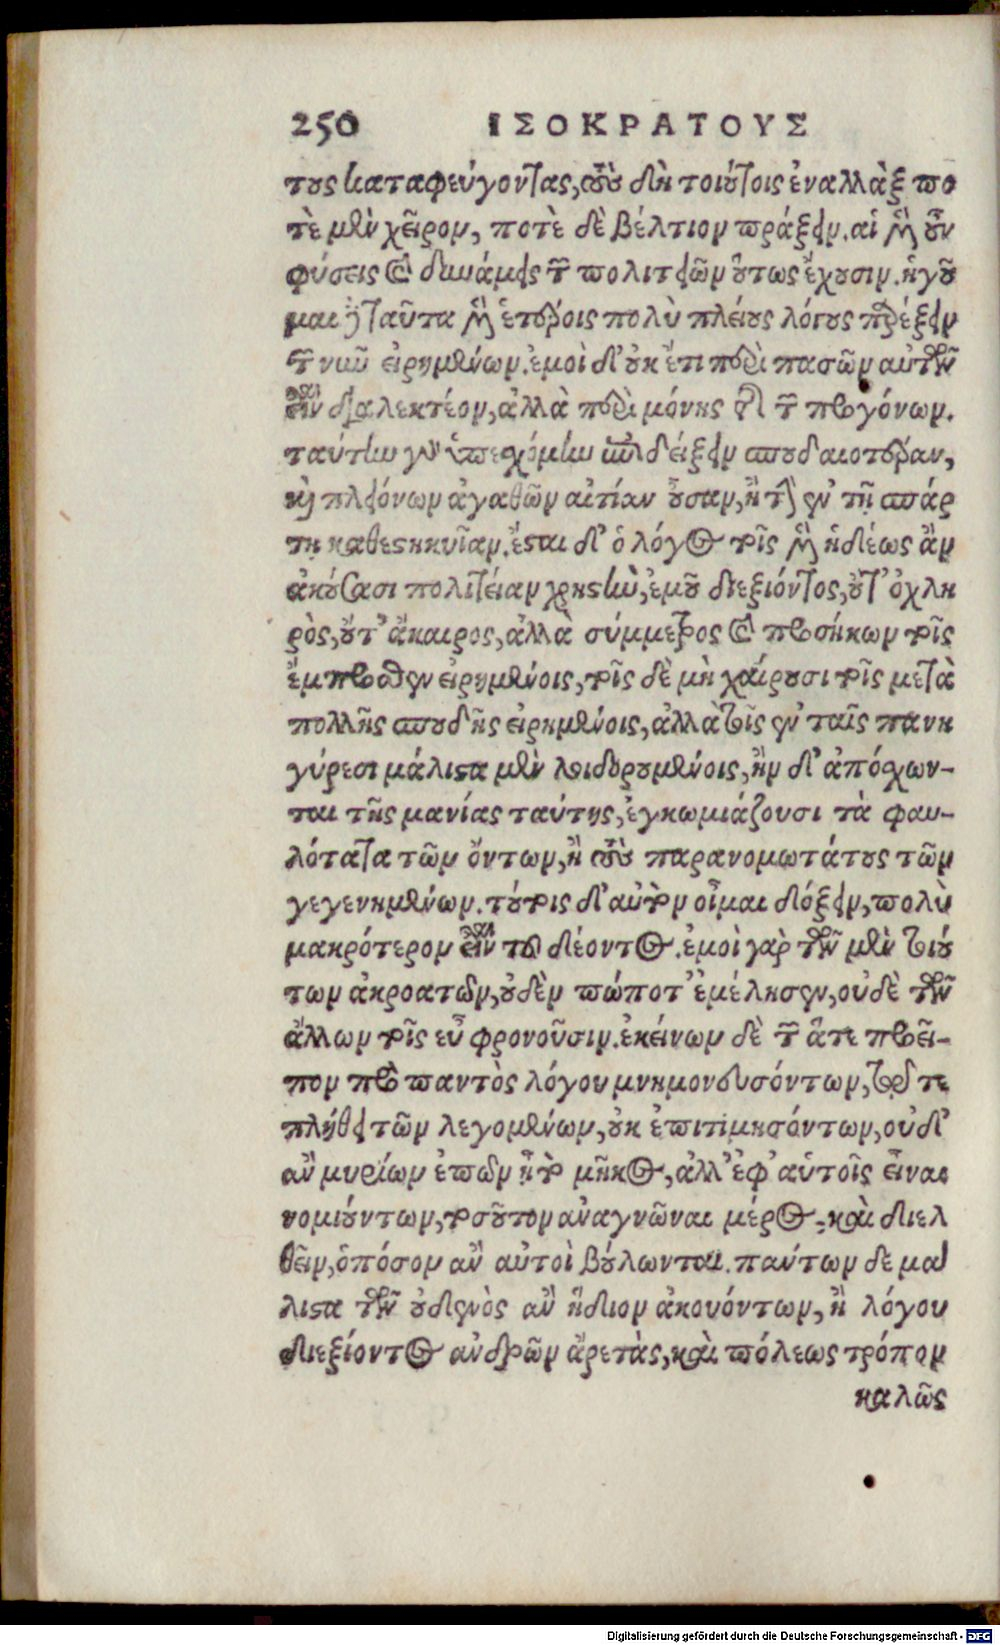 250 ΙΣΟΚΡΑΤΟΥΣ
τους καταφεύγοντας, τοὺς δὴ τοιούτοις ἐναλλὰξ πο
τὲ μὲν χεῖρον, ποτὲ δὲ βέλτιον πράξειν. αἱ μὲν οὖν
φύσεις καὶ δυνάμεις τῶν πολιτειῶν οὕτως ἔχουσιν. ἡγοῦ
μαι δὲ ταῦτα μὲν ἑτέροις πολὺ πλείους λόγους παρέξειν
τῶν νῦν εἰρημένων. ἐμοὶ δ' οὐκ ἔτι περὶ πασῶν αὐτῶν
εἶναι διαλεκτέον, ἀλλὰ περὶ μόνης τῆς τῶν προγόνων.
ταύτην γὰρ ὑπεσχόμην ἐπιδείξειν σπουδαιοτέραν,
καὶ πλειόνων ἀγαθῶν αἰτίαν οὖσαν, ἢ τὴν ἐν τῇ σπάρ
τῃ καθεστηκυῖαν. ἔσται δ' ὁ λόγος τοῖς μὲν ἡδέως ἂν
ἀκούσασι πολιτείαν χρηστὴν, ἐμοῦ διεξιόντος, οὔτ' ὀχλη
ρὸς, οὔτ' ἄκαιρος, ἀλλὰ σύμμετρος καὶ προσήκων τοῖς
ἔμπροσθεν εἰρημένοις, τοῖς δὲ μὴ χαίρουσι τοῖς μετὰ
πολλῆς σπουδῆς εἰρημένοις, ἀλλὰ τοῖς ἐν ταῖς πανη
γύρεσι μάλιστα μὲν λοιδορουμένοις, ἢν δ' ἀπόσχων-
ται τῆς μανίας ταύτης, ἐγκωμιάζουσι τὰ φαυ-
λότατα τῶν ὄντων, ἢ τοὺς παρανομωτάτους τῶν
γεγενημένων. τούτοις δ' αὐτὸν οἶμαι δόξειν, πολὺ
μακρότερον εἶναι τοῦ δέοντος. ἐμοὶ γὰρ τῶν μὲν τοιού
των ἀκροατῶν, οὐδὲν πώποτ' ἐμέλησεν, οὐδὲ τῶν
ἄλλων τοῖς εὖ φρονοῦσιν. ἐκείνων δὲ τῶν ἅτε προεῖ-
πον πρὸ παντὸς λόγου μνημονευσόντων, τῷ δὲ τε
πλήθει τῶν λεγομένων, οὐκ ἐπιτιμησόντων, οὐδ'
ἂν μυρίων ἐπῶν ᾖ τὸ μῆκος, ἀλλ' ἐφ' αὑτοῖς εἶναι
νομιούντων, τοσοῦτον ἀναγνῶναι μέρος, καὶ διελ
θεῖν, ὁπόσον ἂν αὐτοὶ βούλωνται. πάντων δὲ μά
λιστα τῶν οὐδενὸς ἂν ἥδιον ἀκουόντων, ἢ λόγου
διεξίοντος ἀνδρῶν ἀρετὰς, καὶ πόλεως τρόπον
καλῶς
Digitalisierung gefördert durch die Deutsche Forschungsgemeinschaft - DFG